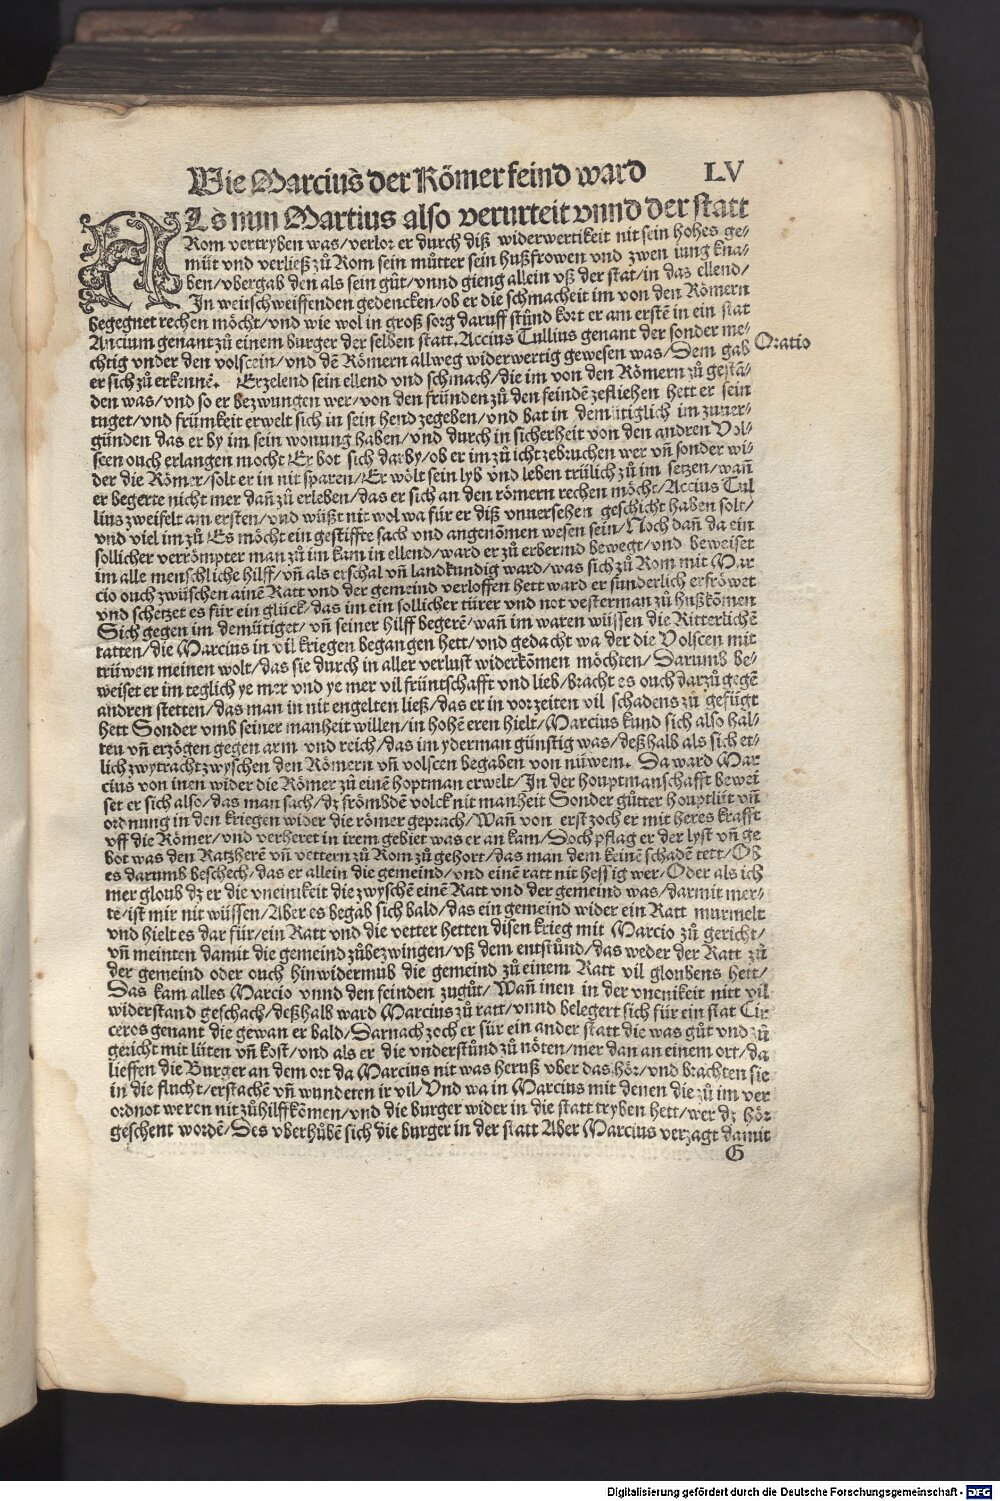 Wie Marcius der Römer feind ward LV
ALs nun Martius also verurteit vnnd der statt
Rom vertryben was/verlor er durch diß widerwertikeit nit sein hohes ge⸗
müt vnd verließ zů Rom sein můtter sein hußfrowen vnd zwen iung kna⸗
ben/vbergab den als sein gůt/vnnd gieng allein vß der stat/in das ellend/
In weitschweiffenden gedencken/ob er die schmacheit im von den Römern
begegnet rechen möcht/vnd wie wol in groß sorg daruff stůnd kort er am erstē in ein stat
Ancium genant zů einem burger der selben statt. Accius Tullius genant der sonder me⸗
chtig vnder den volscein/vnd dē Römern allweg widerwertig gewesen was/Dem gab
Oratio
er sich zů erkennē. Erzelend sein ellend vnd schmach/die im von den Römern zů gestā⸗
den was/vnd so er bezwungen wer/von den fründen zů den feindē zefliehen hett er sein
tuget/vnd frümkeit erwelt sich in sein hend zegeben/vnd bat in demütiglich im zuuer⸗
günden das er by im sein wonung haben/vnd durch in sicherheit von den andren Vol⸗
scen ouch erlangen mocht Er bot sich darby/ob er im zů icht zebruchen wer vñ sonder wi⸗
der die Römer/solt er in nit sparen/Er wölt sein lyb vnd leben trülich zů im setzen/wañ
er begerte nicht mer dañ zů erleben/das er sich an den römern rechen möcht/Accius Tul
lius zweifelt am ersten/vnd wüßt nit wol wa für er diß vnuersehen geschicht haben solt/
vnd viel im zů Es möcht ein gestiffte sach vnd angenōmen wesen sein/Noch dañ da ein
sollicher verrömpter man zů im kam in ellend/ward er zů erbermd bewegt/vnd beweiset
im alle menschliche hilff/vñ als erschal vñ landkundig ward/was sich zů Rom mit Mar
cio ouch zwüschen ainē Ratt vnd der gemeind verloffen hett ward er sunderlich erfröwet
vnd schetzet es für ein glück/das im ein sollicher türer vnd not vesterman zů huß kōmen
Sich gegen im demütiget/vñ seiner hilff begerē/wañ im waren wüssen die Ritterlichē
tatten/die Marcius in vil kriegen begangen hett/vnd gedacht wa der die Volscen mit
trüwen meinen wolt/das sie durch in aller verlust widerkōmen möchten/Darumb be⸗
weiset er im teglich ye mer vnd ye mer vil früntschafft vnd lieb/bracht es ouch darzů gegē
andren stetten/das man in nit engelten ließ/das er in vorzeiten vil schadens zů gefügt
hett Sonder vmb seiner manheit willen/in hohē eren hielt/Marcius kund sich also hal⸗
ten vñ erzögen gegen arm vnd reich/das im yderman günstig was/deßhalb als sich et⸗
lich zwytracht zwyschen den Römern vñ volscen begaben von nüwem. Da ward Mar
cius von inen wider die Römer zů einē hoptman erwelt/In der houptmanschafft bewei
set er sich also/das man sach/dz frömbdē volck nit manheit Sonder gůtter houptlüt vñ
ordnung in den kriegen wider die römer geprach/Wañ von erst zoch er mit heres krafft
vff die Römer/vnd verheret in irem gebiet was er an kam/Doch pflag er der lyst vñ ge
bot was den Ratzherē vñ vettern zů Rom zů gehort/das man dem keinē schadē tett/Ob
es darumb beschech/das er allein die gemeind/vnd einē ratt nit hessig wer/Oder als ich
mer gloub dz er die vneinikeit die zwyschē einē Ratt vnd der gemeind was/darmit mer⸗
te/ist mir nit wüssen/Aber es begab sich bald/das ein gemeind wider ein Ratt murmelt
vnd hielt es dar für/ein Ratt vnd die vetter hetten disen krieg mit Marcio zů gericht/
vñ meinten damit die gemeind zůbezwingen/vß dem entstůnd/das weder der Ratt zů
der gemeind oder ouch hinwidermub die gemeind zů einem Ratt vil gloubens hett/
Das kam alles Marcio vnnd den feinden zugůt/Wañ inen in der vnenikeit nitt vil
widerstand geschach/deßhalb ward Marcius zů ratt/vnnd belegert sich für ein stat Cir
ceros genant die gewan er bald/Darnach zoch er für ein ander statt die was gůt vnd zů
gericht mit lüten vñ kost/vnd als er die vnderstůnd zů nöten/mer dan an einem ort/da
lieffen die Burger an dem ort da Marcius nit was heruß vber das hör/vnd brachten sie
in die flucht/erstachē vñ wundeten ir vil/Vnd wa in Marcius mit denen die zů im ver
ordnot weren nit zů hilff kōmen/vnd die burger wider in die statt tryben hett/wer dz hör
geschent wordē/Des vberhůbē sich die burger in der statt Aber Marcius verzagt damit
G
Digitalisierung gefördert durch die Deutsche Forschungsgemeinschaft - DFG